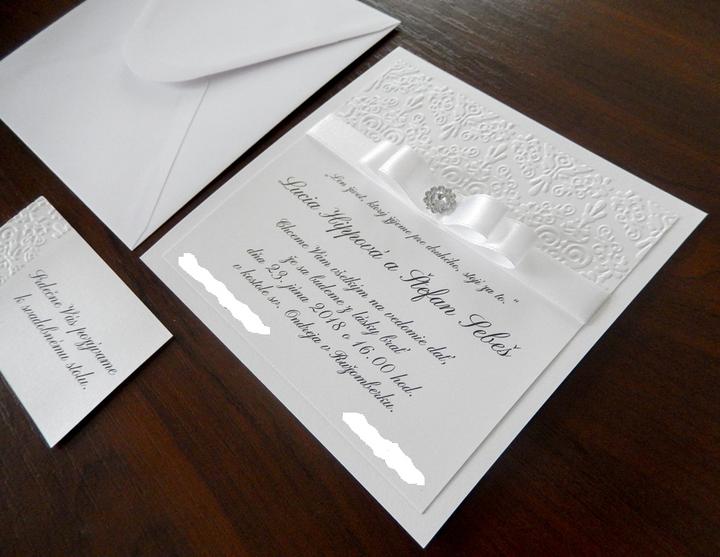 Len život, ktorý žijeme pre druhého, stojí za to. "
Lucia Hüppová a Štefan Sebeš
Chceme Vám všetkým na vedomie dať,
že sa budeme z lásky brať
dňa 23. júna 2018 o 16.00 hod.
v kostole sv. Ondreja v Ružomberku.
Srdečne Vás pozývame
k svadobnému stolu.